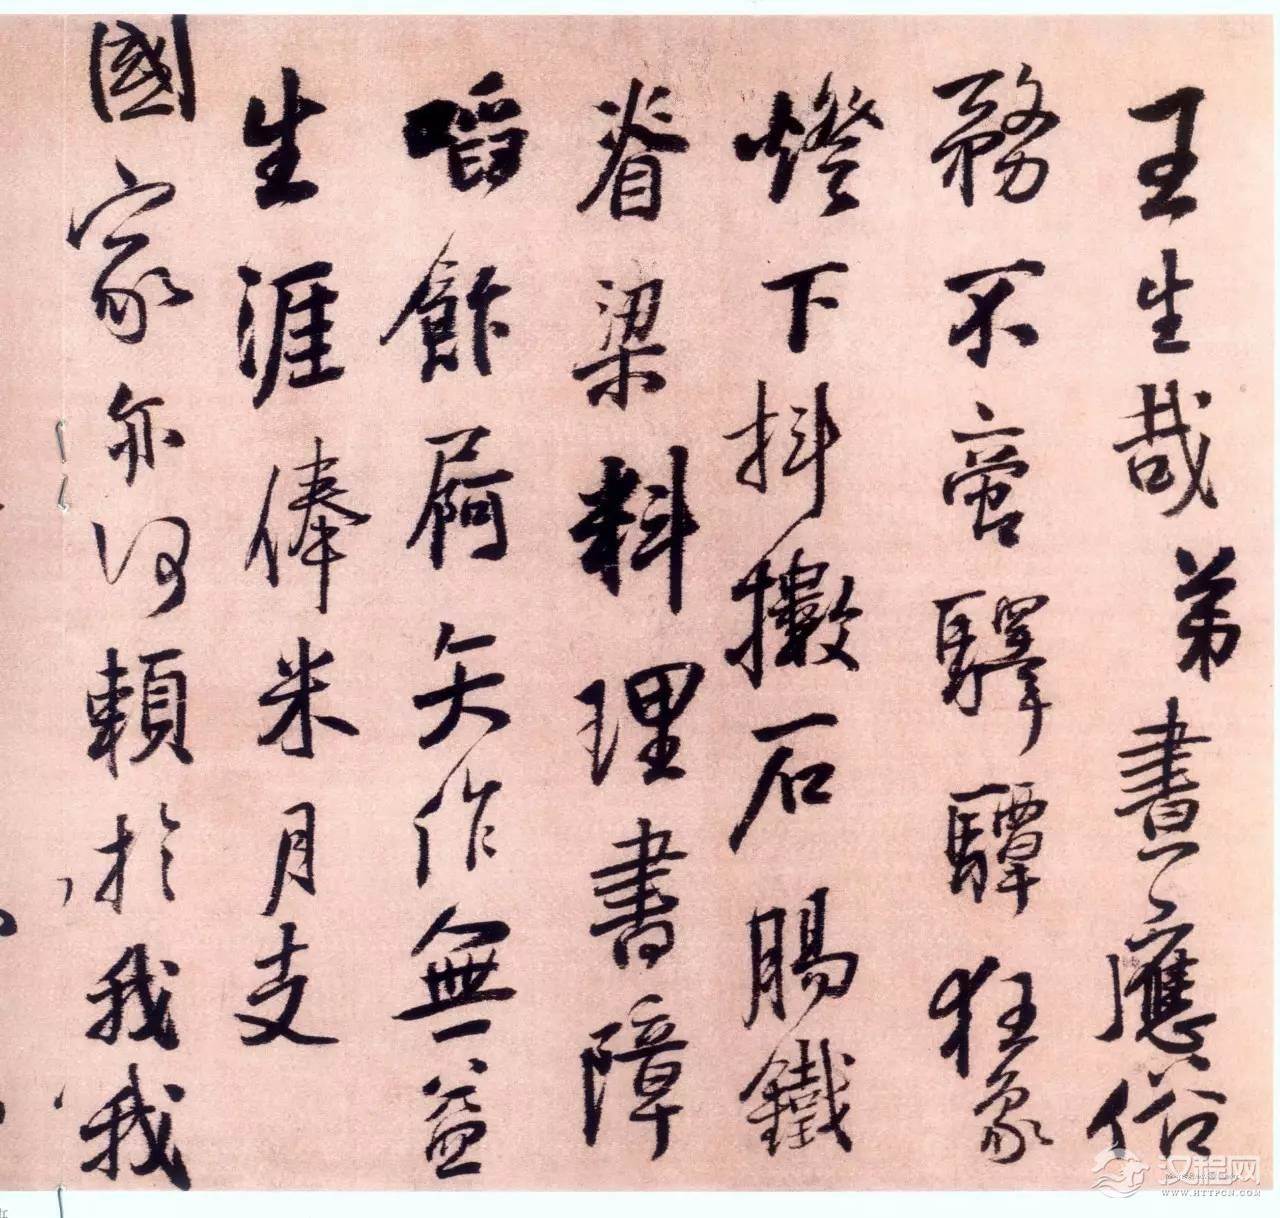 王生哉弟晝應俗
務不啻驛驔狂象
燈下抖擻石腸鐵
脊梁料理書障
啗飰屙矢作無益
生涯俸米月支
國家亦何賴於我我
汉程网
WWW.HTTPCN.COM